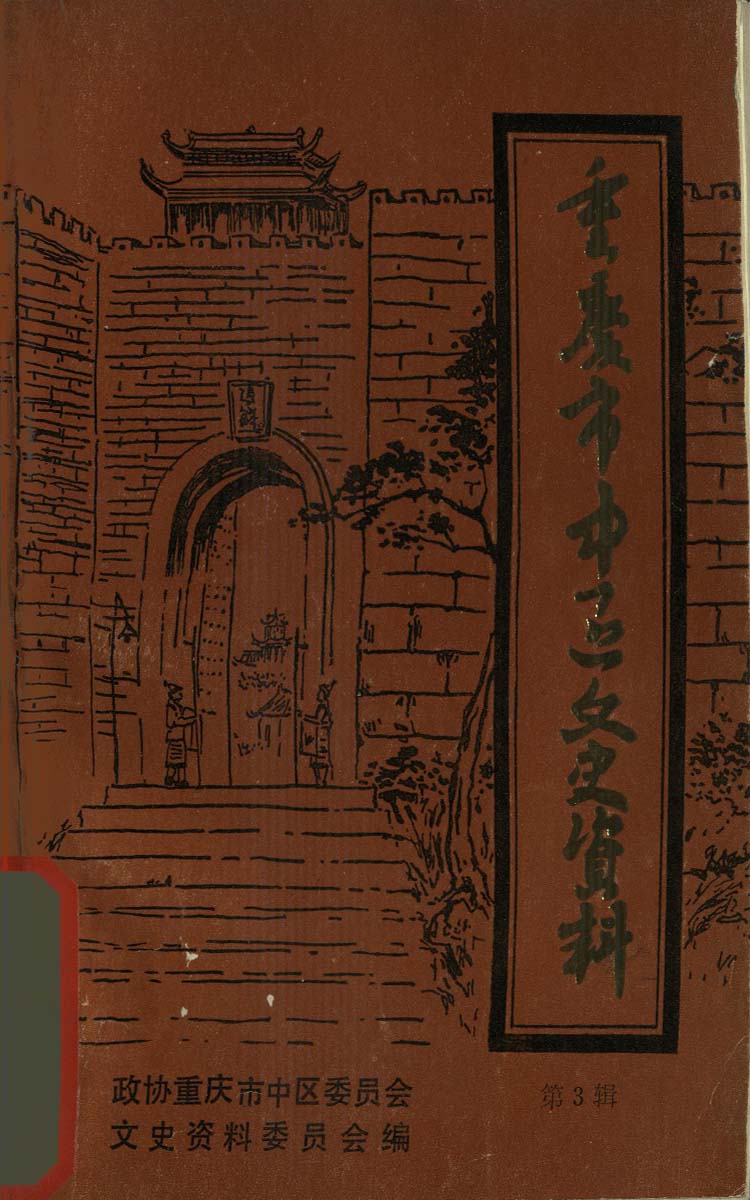 重慶市中区文史資料
政协重庆市中区委员会
文史资料委员会编
第3辑